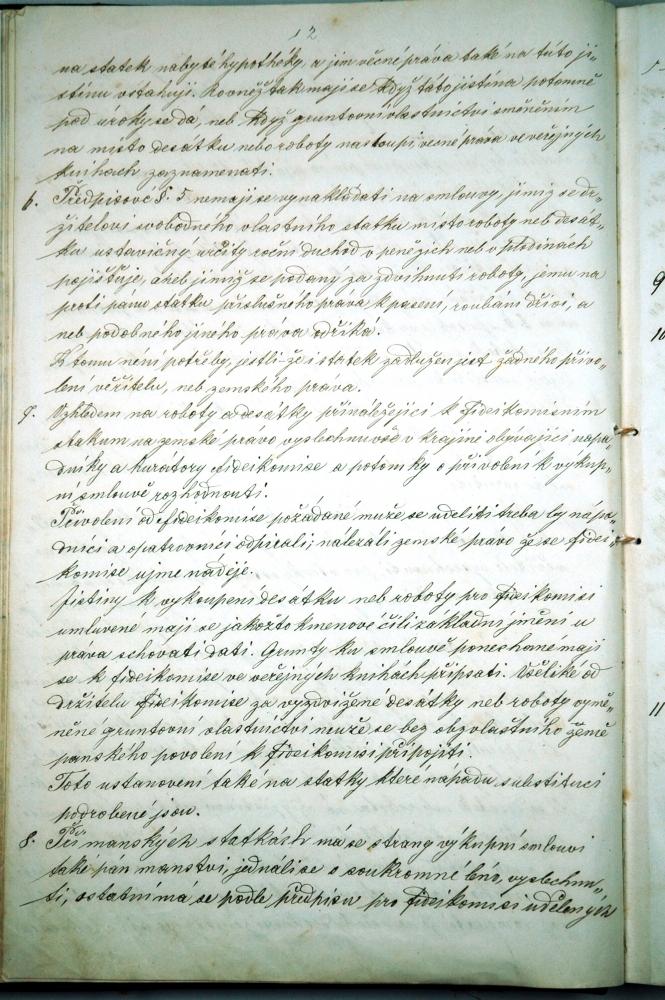 12
na statek nabyté hypothéky, a jim věcné práva také na tuto ji„
stinu vstahují. Rovněž tak mají se když táto jistina potomně
pod uroky se dá, neb když gruntovní vlastnictví směněním
na místo desátku nebo roboty nastoupí, vecné práva ve veřejných
knihách zaznamenati.
6. Předpisové §. 5 nemají se vynakládati na smlouvy, jimiž se dr„
žitelovi svobodného vlastního statku místo roboty neb desát„
ku ustavičný určitý roční duchod v penězích neb v plodinách
pojišťuje, aneb jimiž se poddaný za zdvihnutí roboty, jemu na
proti panu statku příslušného práva k pasení, roubání dříví, a
neb podobného jiného prava odříká.
K tomu není potřeby, jestli-že i statek zadlužen jest žádného přivo„
lení věřitelu, neb zemského práva.
7. Vzhledem na roboty a desátky přináležející k fideikomisním
statkum na zemské právo vyslechnuvše v krajině obývající nápa„
dníky a kurátory fideikomise a potomky o přivolení k výkup„
ní smlouvě rozhodnouti.
Přivolení od fideikomise požádané muže se uděliti třeba by nápa„
dníci a opatrovníci odpírali; nalezáli zemské pravo že se fidei„
komise ujme naděje.
Jistiny k vykoupení desátku neb roboty pro fideikomisi
umluvené mají se jakožto kmenové čili základní jmění u
práva schovati dáti. Grunty ku smlouvě ponechané mají
se k fideikomise ve veřejných knihách připsati. Všeliké od
držitelu fideikomise za vyzdvižené desátky neb roboty vymě„
něné gruntovní vlastnictví muže se bez obzvlaštního země
panského povolení k fideikomisi připojiti.
Toto ustanovení také na statky které nápadu substituci
podrobené jsou.
8. Při manských statkách má se strany výkupní smlouvi
také pán manství, jednáli se o soukromné léno, vyslechnu„
ti, ostatní má se podle předpisu pro fideikomisi udělených
9
10
11